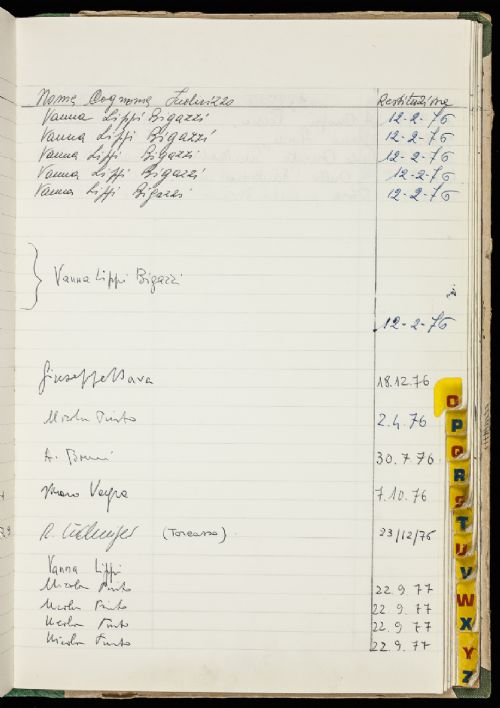 Nome Cognome Indirizzo Restituzione
Vanna Lippi Bigazzi 12-2-76
Vanna Lippi Bigazzi 12-2-76
Vanna Lippi Bigazzi 12-2-76
Vanna Lippi Bigazzi 12-2-76
Vanna Lippi Bigazzi 12-2-76
} Vanna Lippi Bigazzi
12-2-76
Giuseppe 18.12.76
Nicola Pinto 2.4.76
A. 30.7.76
7.10.76
R. 23/12/76
Vanna Lippi
Nicola Pinto 22.9.77
Nicola Pinto 22.9.77
Nicola Pinto 22.9.77
Nicola Pinto 22.9.77
O
P
Q
R
S
T
U
V
W
X
Y
Z